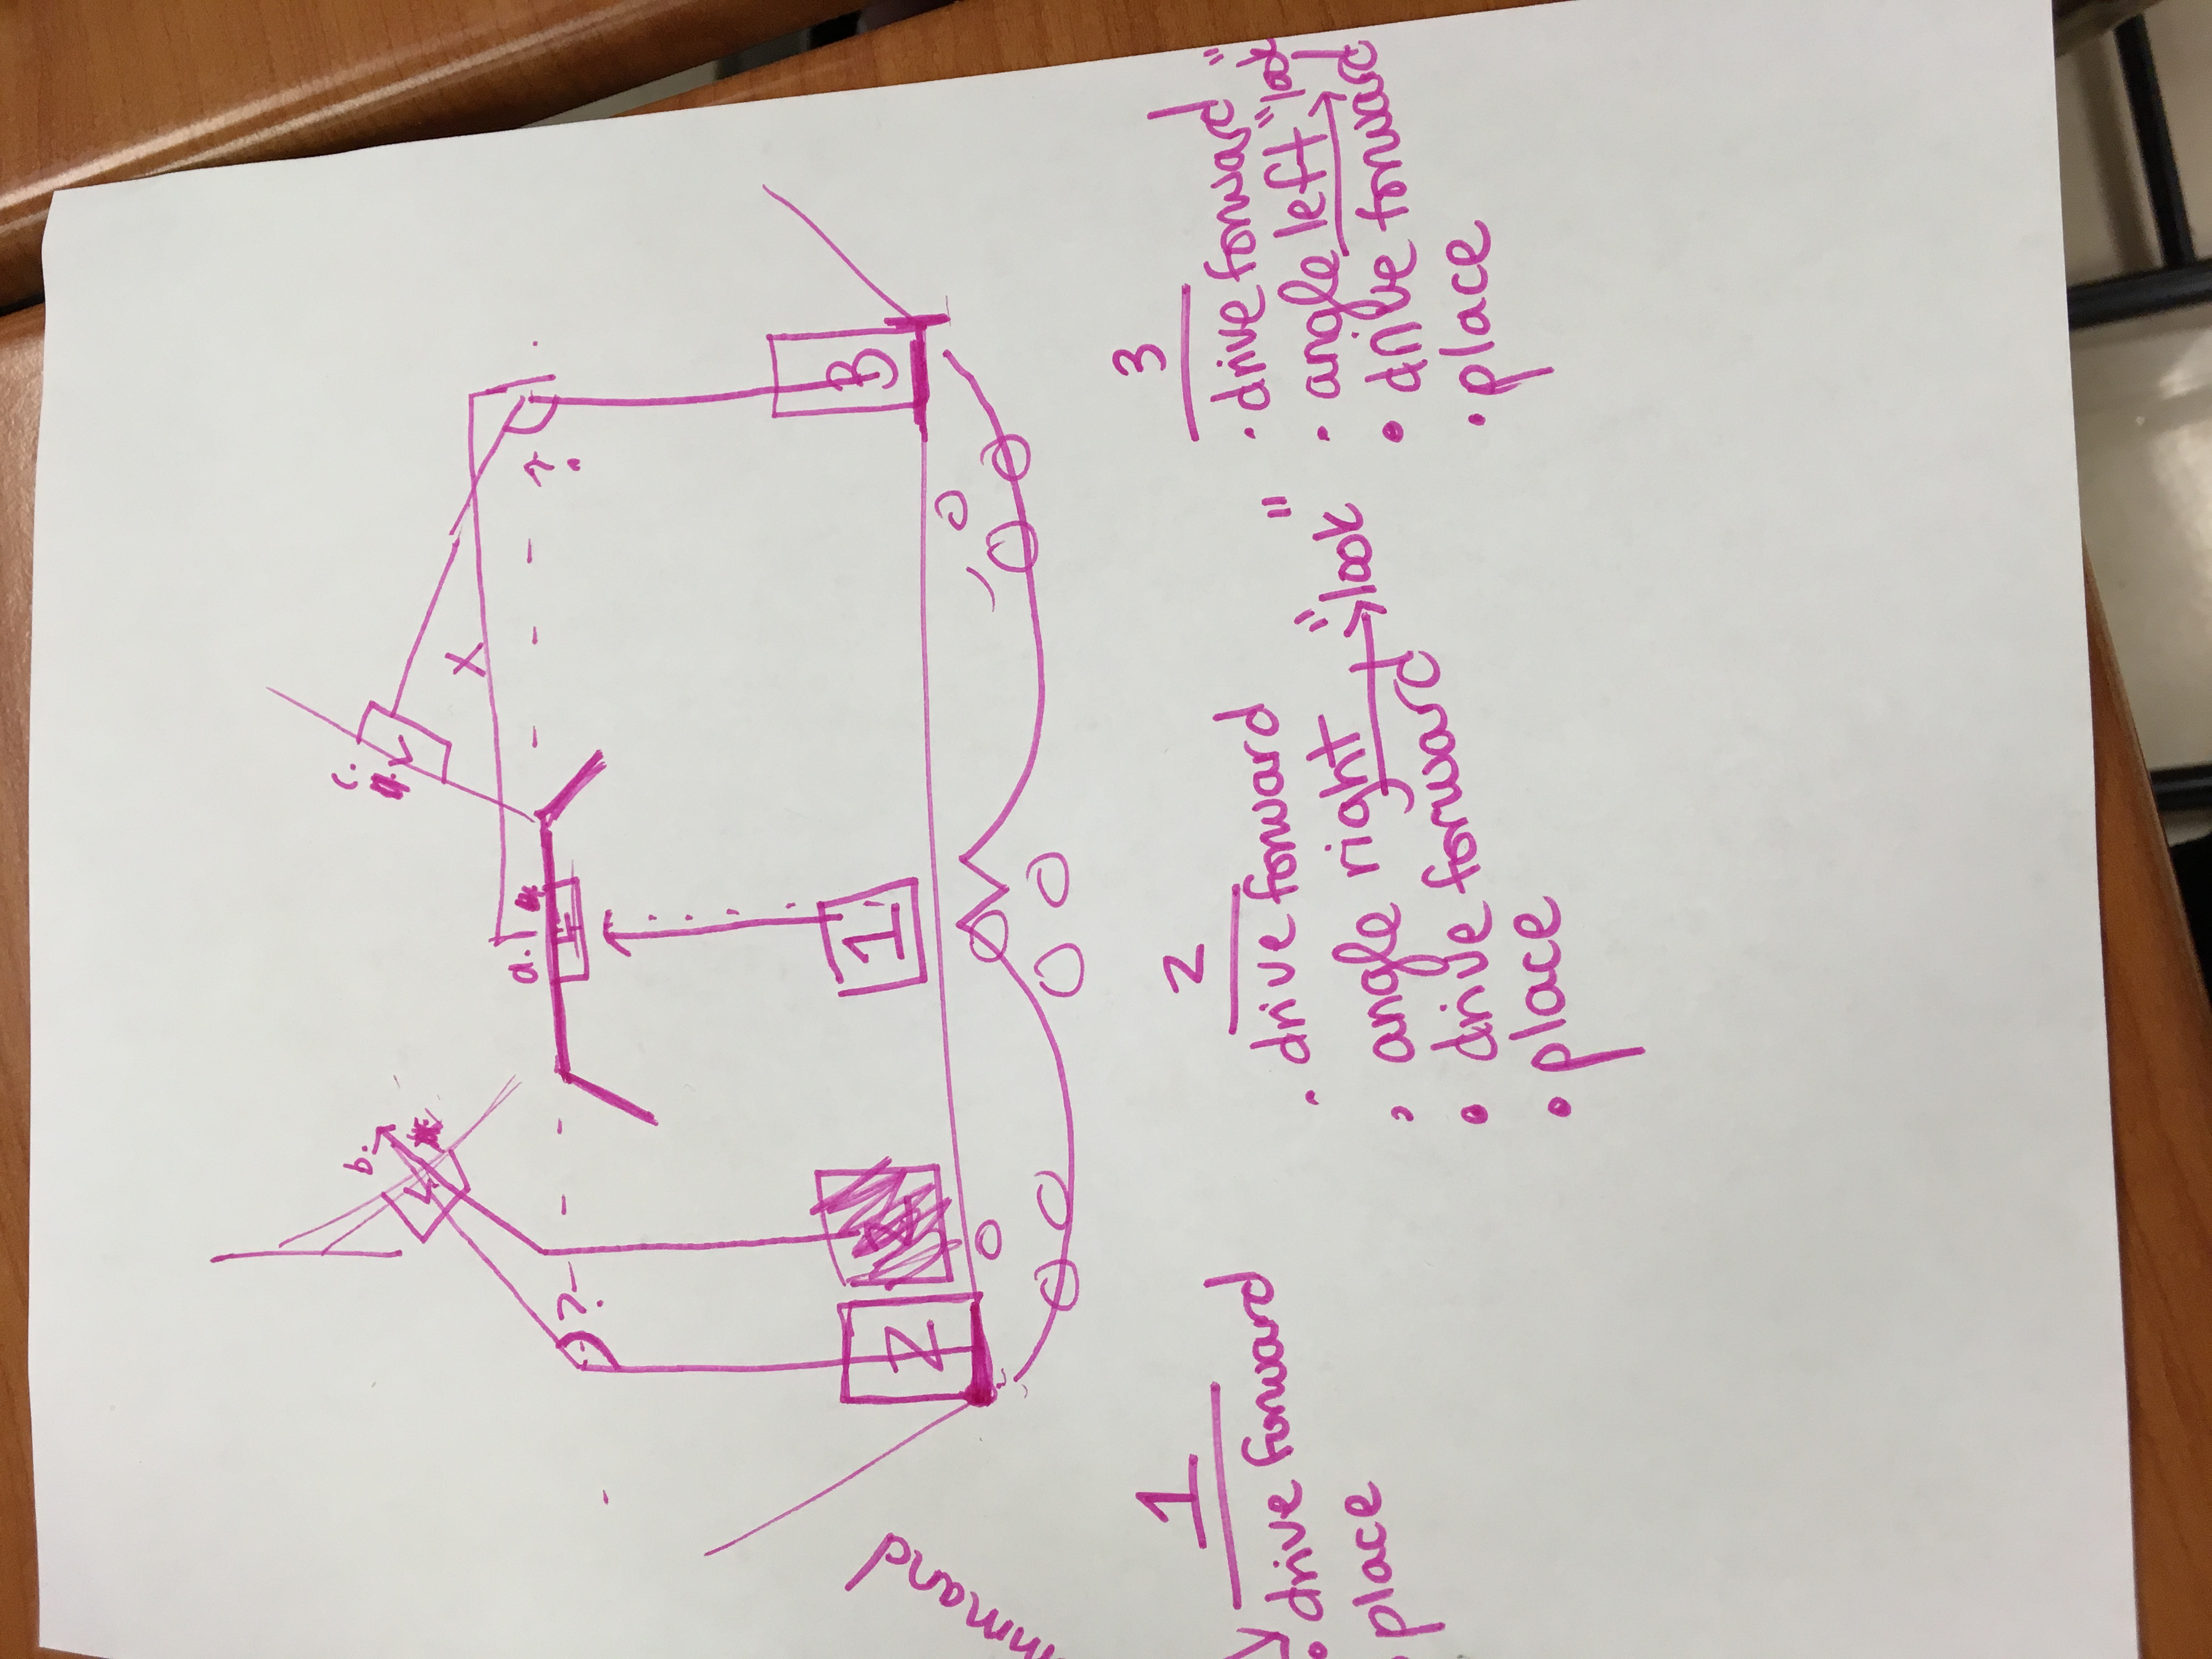 b.
c.
a.
X
?
?
2
1
3
mmand
1
• drive forward
• place
2
• drive forward
• angle right → "look"
• drive forward
• place
3
• drive forward
• angle left → "look"
• drive forward
• place